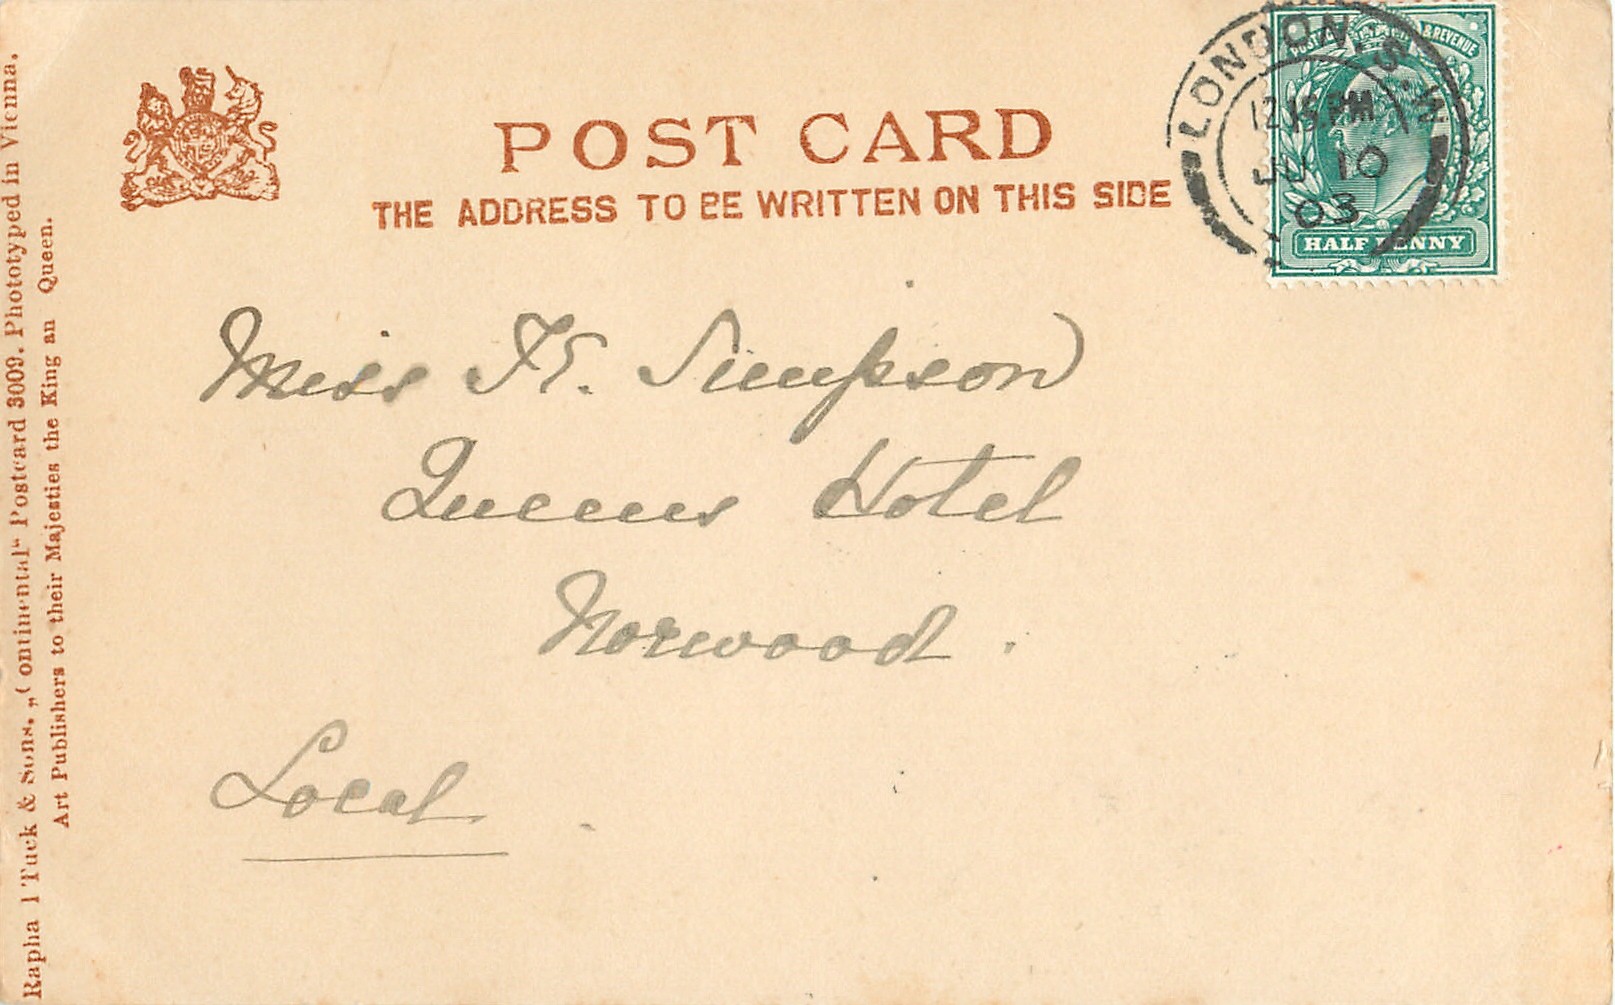 POST CARD
THE ADDRESS TO BE WRITTEN ON THIS SIDE
LONDON. S.W.
12.15 PM
JU 10
03
POSTAGE & REVENUE
HALF PENNY
Miss F. Simpson
Queens Hotel
Norwood.
Local
Rapha l Tuck & Sons. „Continental“ Postcard 3009. Phototyped in Vienna.
Art Publishers to their Majesties the King an Queen.